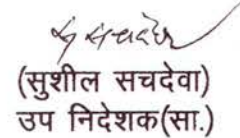 (सुशील सचदेवा)
उप निदेशक(सा.)